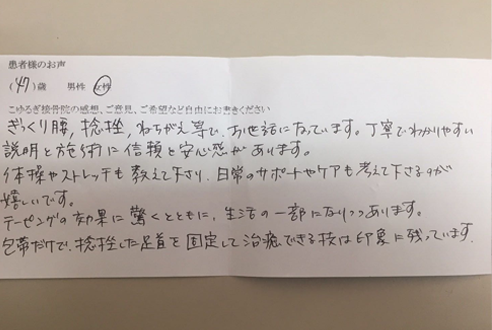 患者様のお声
(47)歳 男性 女性
こゆるぎ接骨院の感想、ご意見、ご希望など自由にお書きください
ぎっくり腰、捻挫、ねちがえ等で、お世話になっています。丁寧でわかりやすい
説明と施術に信頼と安心感があります。
体操やストレッチも教えて下さり、日常のサポートやケアも考えて下さるのが
嬉しいです。
テーピングの効果に驚くとともに、生活の一部になりつつあります。
包帯だけで、捻挫した足首を固定して治癒できる技は印象に残っています。